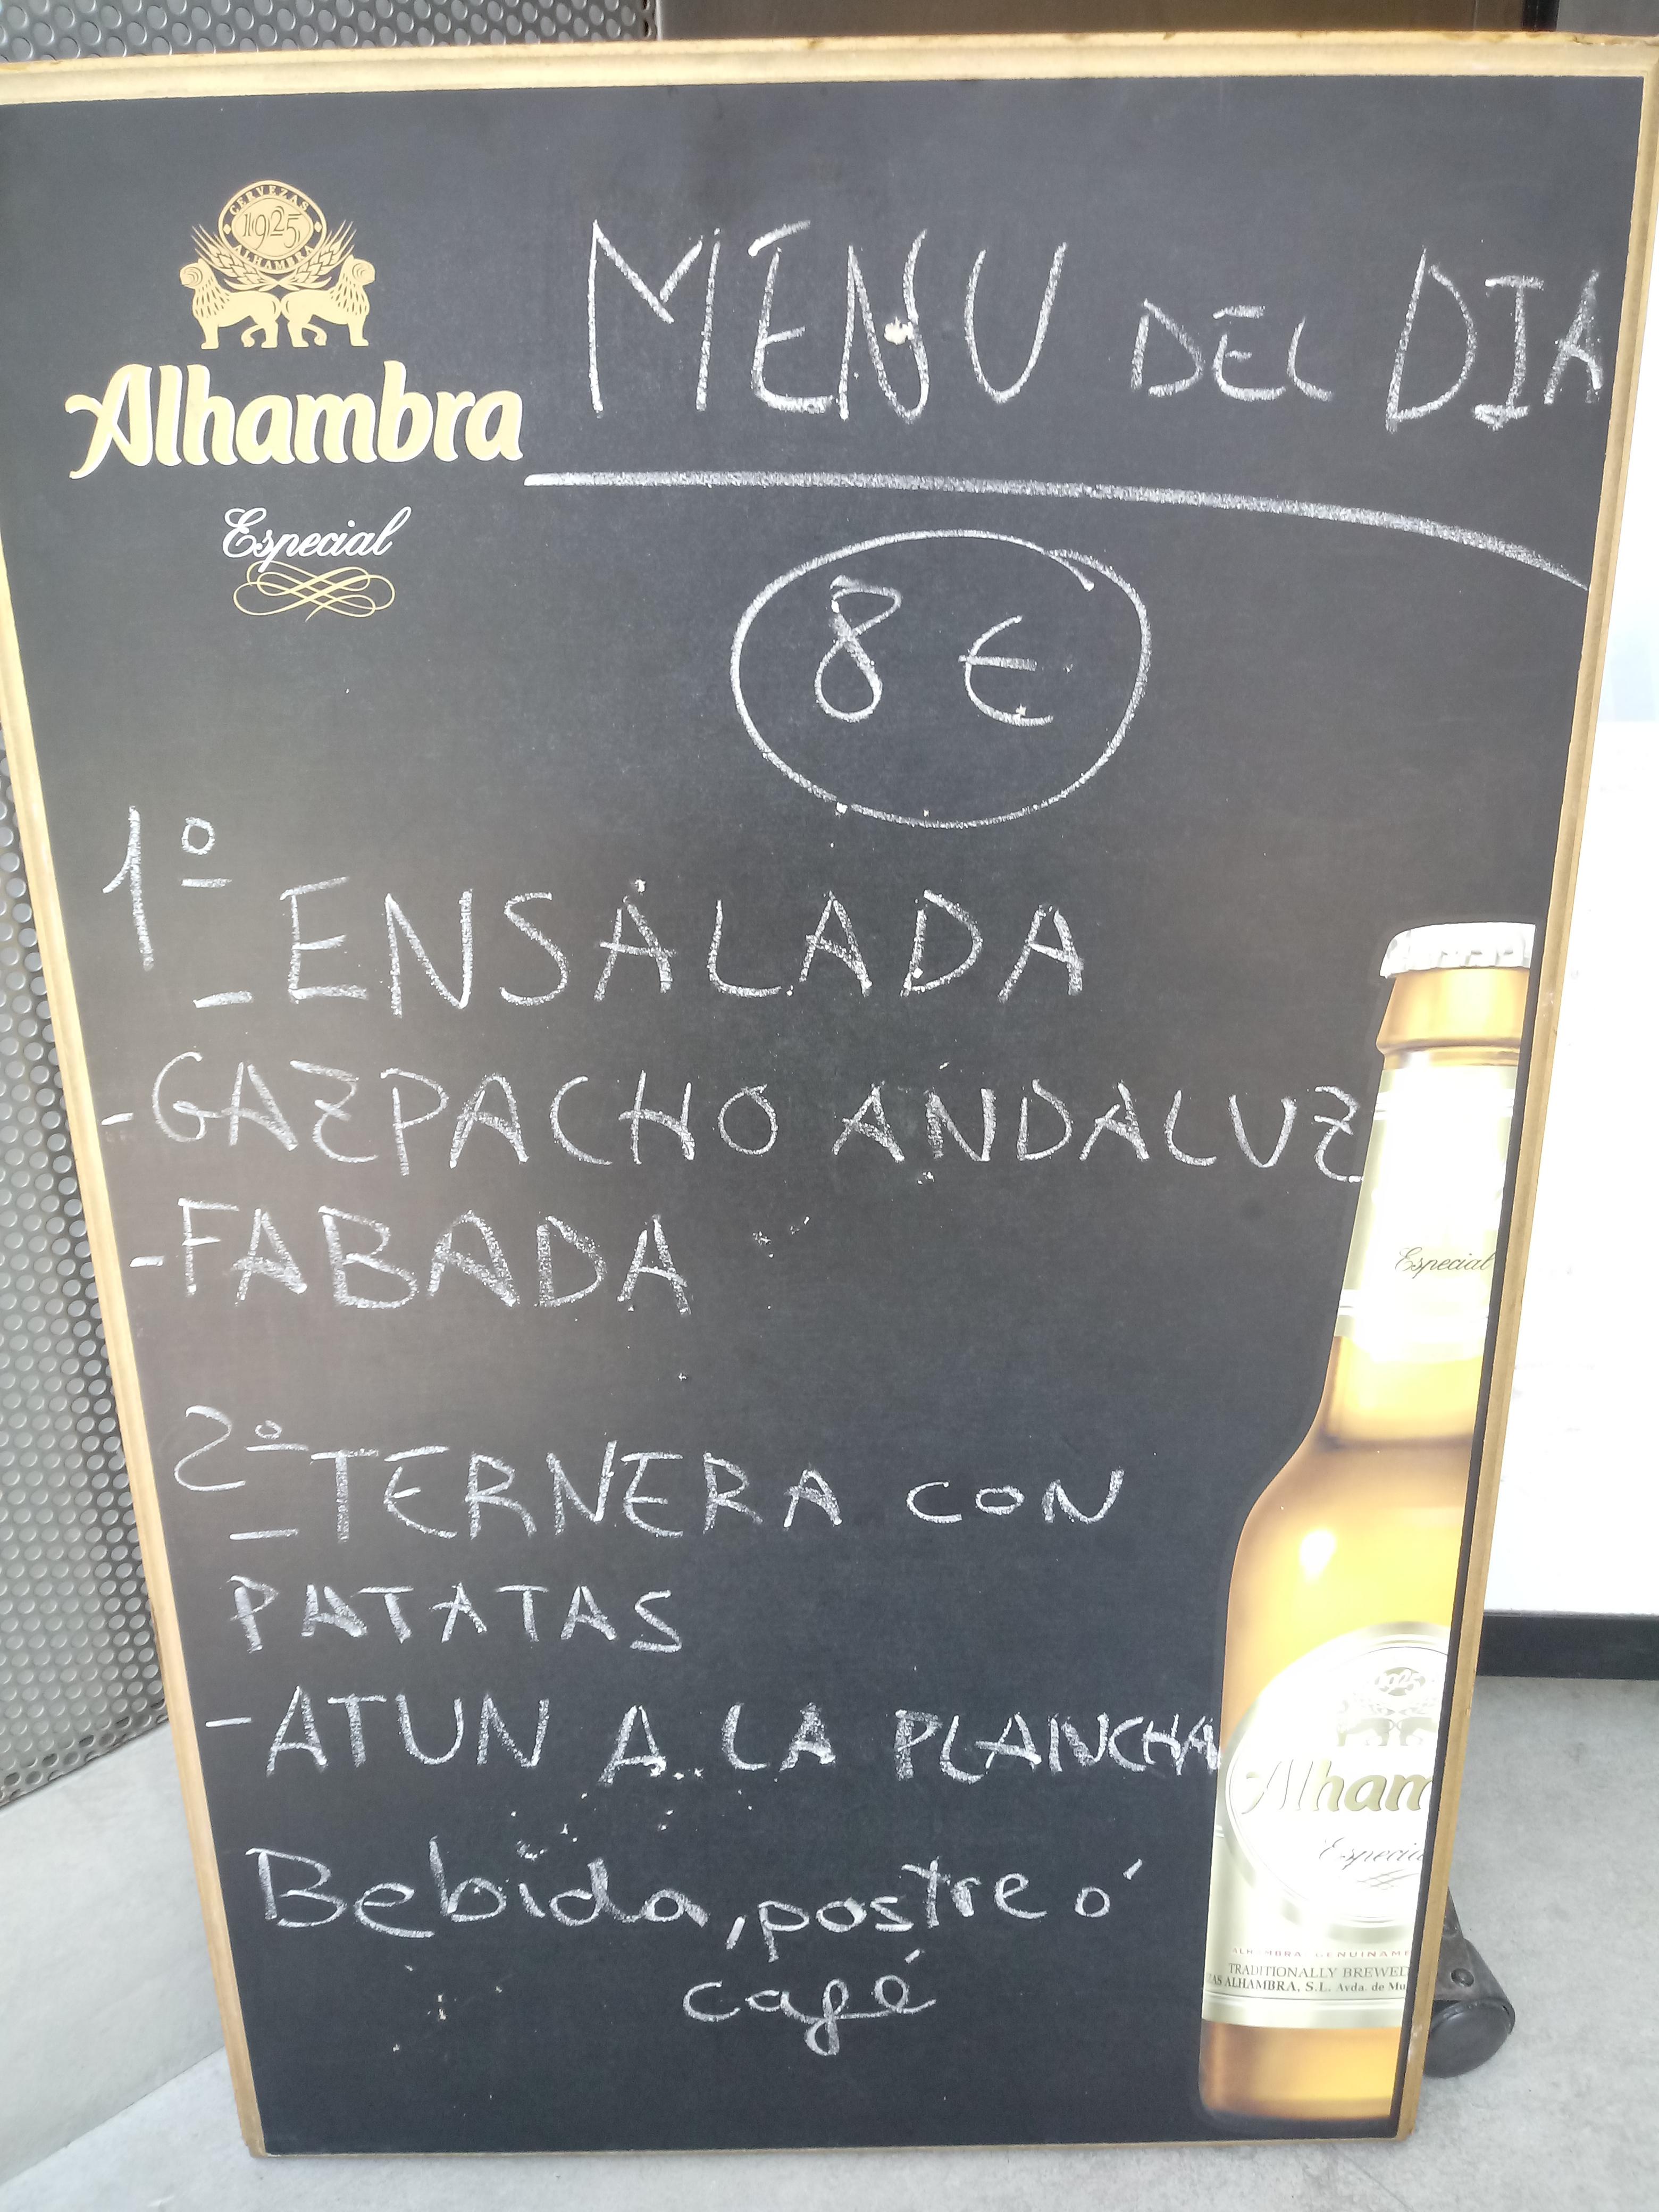 CERVEZAS
1925
ALHAMBRA
Alhambra
Especial
MENU DEL DIA
8 €
1º
- ENSALADA
- GAZPACHO ANDALUZ
- FABADA
2º
- TERNERA CON
PATATAS
- ATUN A LA PLANCHA
Bebida, postre ó
café
Especial
Alham
Especial
TRADITIONALLY BREWED
ZAS ALHAMBRA, S.L. Avda. de Mu